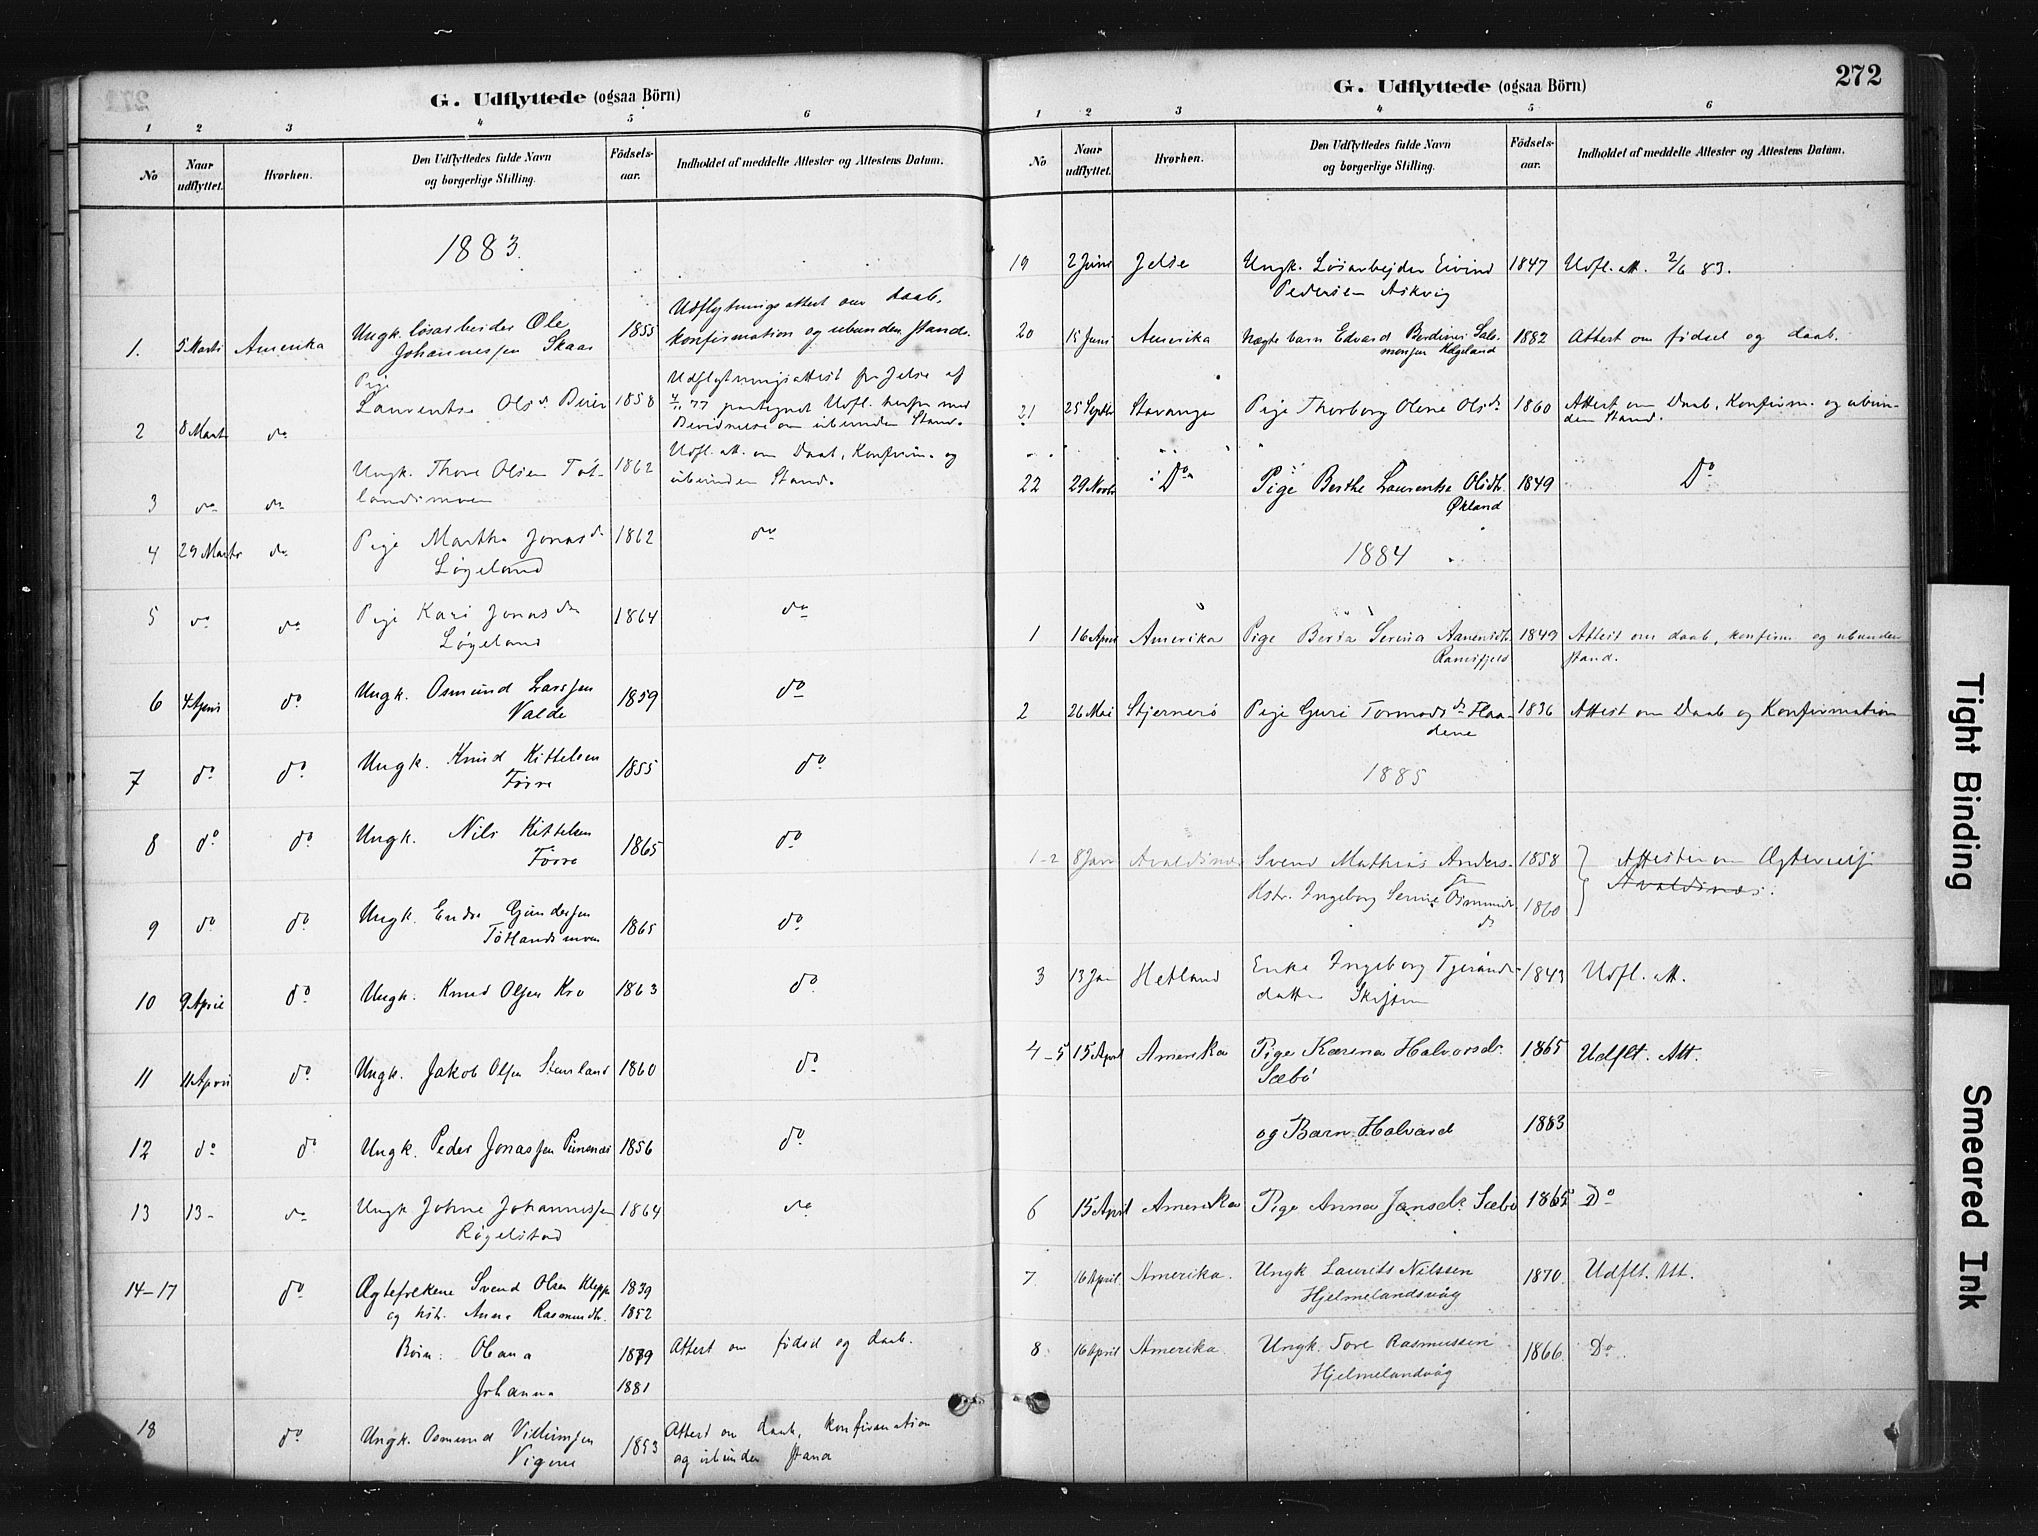 G. Udflyttede (ogsaa Börn)
1 2 3 4 5 6
No Naar udflyttet. Hvorhen. Den Udflyttedes fulde Navn og borgerlige Stilling. Födsels-aar. Indholdet af meddelte Attester og Attestens Datum.
1883.
1. 5 Marts Amerika Ungk. løsarbeider Ole Johannessen Skaar 1855 Udflytningsattest om daab, konfirmation og ubunden stand.
2 8 Marts do Pige Laurentse Olsdr 1858 Udflytningsattest fra Jelse af 77 Udfl. herfra med om ubunden Stand.
3 do do Ungk. Thore Olsen Tøtlandsmoen 1862 Udfl. att. om Daab, Konfirm. og ubunden Stand.
4 29 Marts do Pige Martha Jonasdr Løgeland 1862 do
5 do do Pige Kari Jonasdr Løgeland 1864 do
6 4 April do Ungk. Osmund Larssen Valde 1859 do
7 do do Ungk. Knud Kittelsen Førre 1855 do
8 do do Ungk. Nils Kittelsen Førre 1865 do
9 do do Ungk. Endre Gundersen Tøtlandsmoen 1865 do
10 9 April do Ungk. Knud Olsen Kro 1863 do
11 11 April do Ungk. Jakob Olsen Stensland 1860 do
12 do do Ungk. Peder Jonassen 1856 do
13 13 - do Ungk Johne Johannessen Røgelstad 1864 do
14-17 do Ægtefolkene Svend Olsen Kleppe 1839
og hstr. Anna Rasmusdtr. 1852
Børn: Oleana 1879 Attest om fødsel og daab.
Johanna 1881
18 do Ungk. Osmund Villumsen Vigene 1853 Attest om daab, konfirmation og ubunden stand
G. Udflyttede (ogsaa Börn) 272
1 2 3 4 5 6
No Naar udflyttet. Hvorhen. Den Udflyttedes fulde Navn og borgerlige Stilling. Födsels-aar. Indholdet af meddelte Attester og Attestens Datum.
19 2 Juni Jelse Ungk. Løsarbejder Eivind Pedersen Askvig 1847 Udfl. att. 2/6 83.
20 15 Juni Amerika Uægte barn Edvard Berdines Salomonsen Helgeland 1882 Attest om fødsel og daab.
21 25 Septbr Stavanger Pige Thorborg Olene Olsdr 1860 Attest om Daab, Konfirm. og ubunden Stand.
22 29 Novbr Do Pige Berthe Laurentse Olsdtr. Økland 1849 Do
1884
1 16 April Amerika Pige Berta Serina Aanensdtr Ramsfjeld 1849 Attest om daab, konfirm. og ubunden stand.
2 26 Mai Stjernerø Pige Guri Tormodsdr Flaadene 1836 Attest om Daab og Konfirmation
1885
1-2 8 Jan Avaldsnæs Svend Mathias Anderssen 1858 Attester om Ægtevielse
Hstr. Ingeborg Serine Osmundsdr 1860 Avaldsnæs.
3 13 Jan Hetland Enke Ingeborg Tjerandsdatter 1843 Udfl. att.
4-5 15 April Amerika Pige Karina Halvorsdr. Sæbø 1865 Udflt. Att.
og Barn Halvard 1883
6 15 April Amerika Pige Anna Jansdtr. Sæbø 1865 Do
7 16 April. Amerika. Ungk Laurits Nilssen Hjelmelandsvåg 1870. Udflt. Att.
8 16 April Amerika. Ungk. Tore Rasmussen Hjelmelandvåg 1866. Do
Tight Binding
Smeared Ink